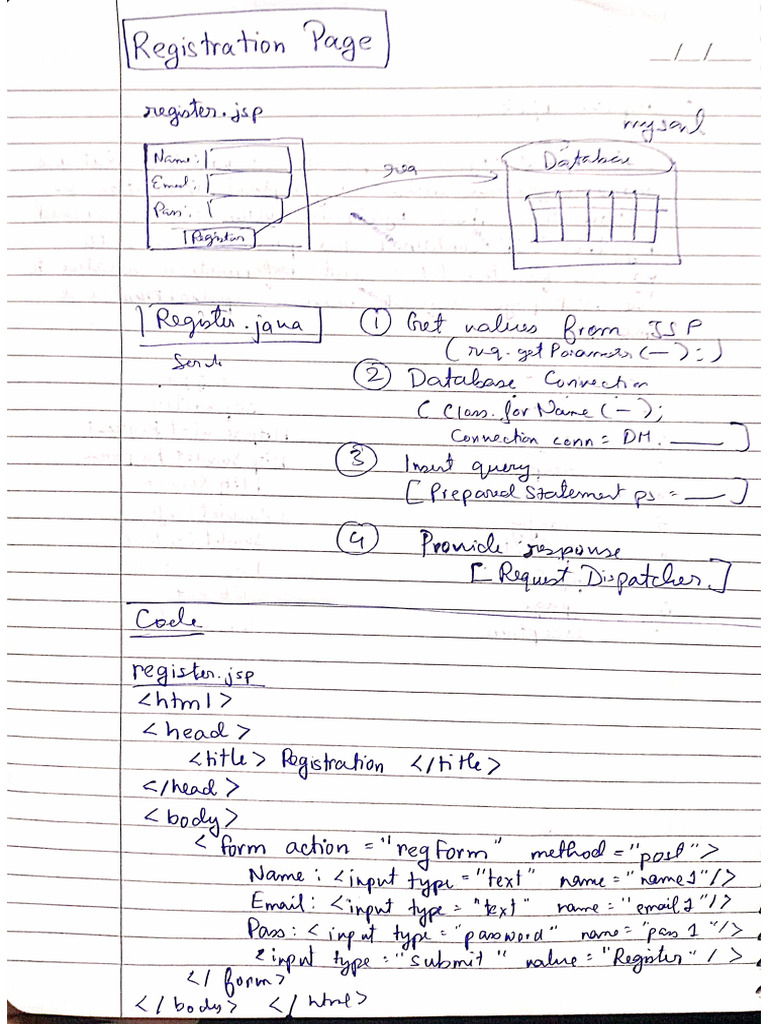 Registration Page
_/_/__
register.jsp
mysql
Name:
Email:
Pass:
Register
Database
Register.java
① Get values from JSP
(req.getParameter(—);)
② Database Connection
( Class.forName(—);
Connection conn = DM. ____ ]
③ Insert query
[ Prepared Statement ps = ___ ]
④ Provide response
[ Request Dispatcher ]
Code
register.jsp
<html>
<head>
<title> Registration </title>
</head>
<body>
<form action = "regForm" method = "post">
Name : <input type = "text" name = "name1"/>
Email: <input type = "text" name = "email1"/>
Pass : <input type = "password" name = "pass1"/>
<input type = "submit" value = "Register" />
</form>
</body> </html>